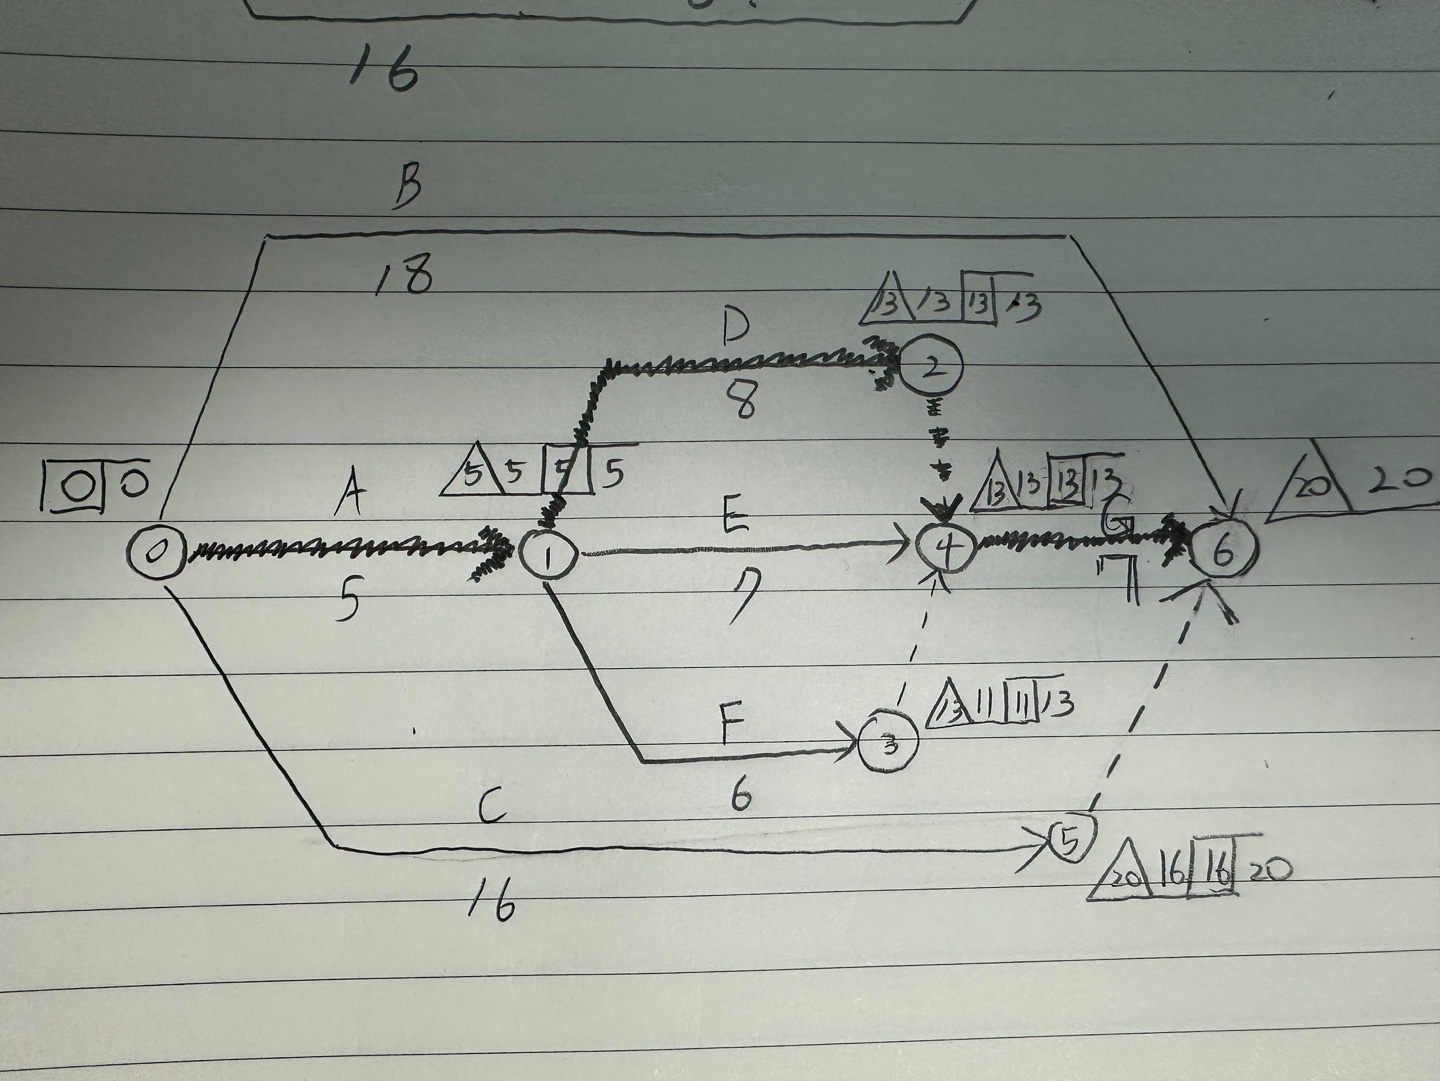 16
B
18
13 13 13 13
D
2
8
0 0
A
5 5 5 5
E
13 13 13 13
G
20 20
0
1
4
6
5
7
7
F
13 11 11 13
3
6
C
5
20 16 16 20
16